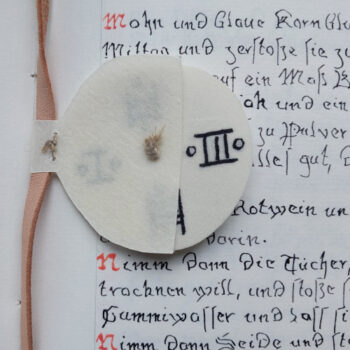 Mohn und Blaue Korn
Millon und zerstoße sie z
auf ein Maß
und ein
zu Pulver
alles gut, D
III
I
Rotwein un
darin.
Nimm dann die Tücher,
trocknen will, und stoße
Gummiwasser und laß si
Nimm dann Seide und